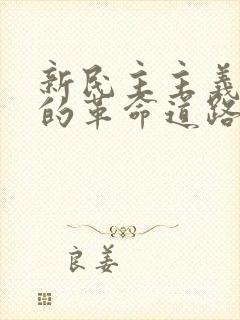 新民主主义
的革命道路
良姜